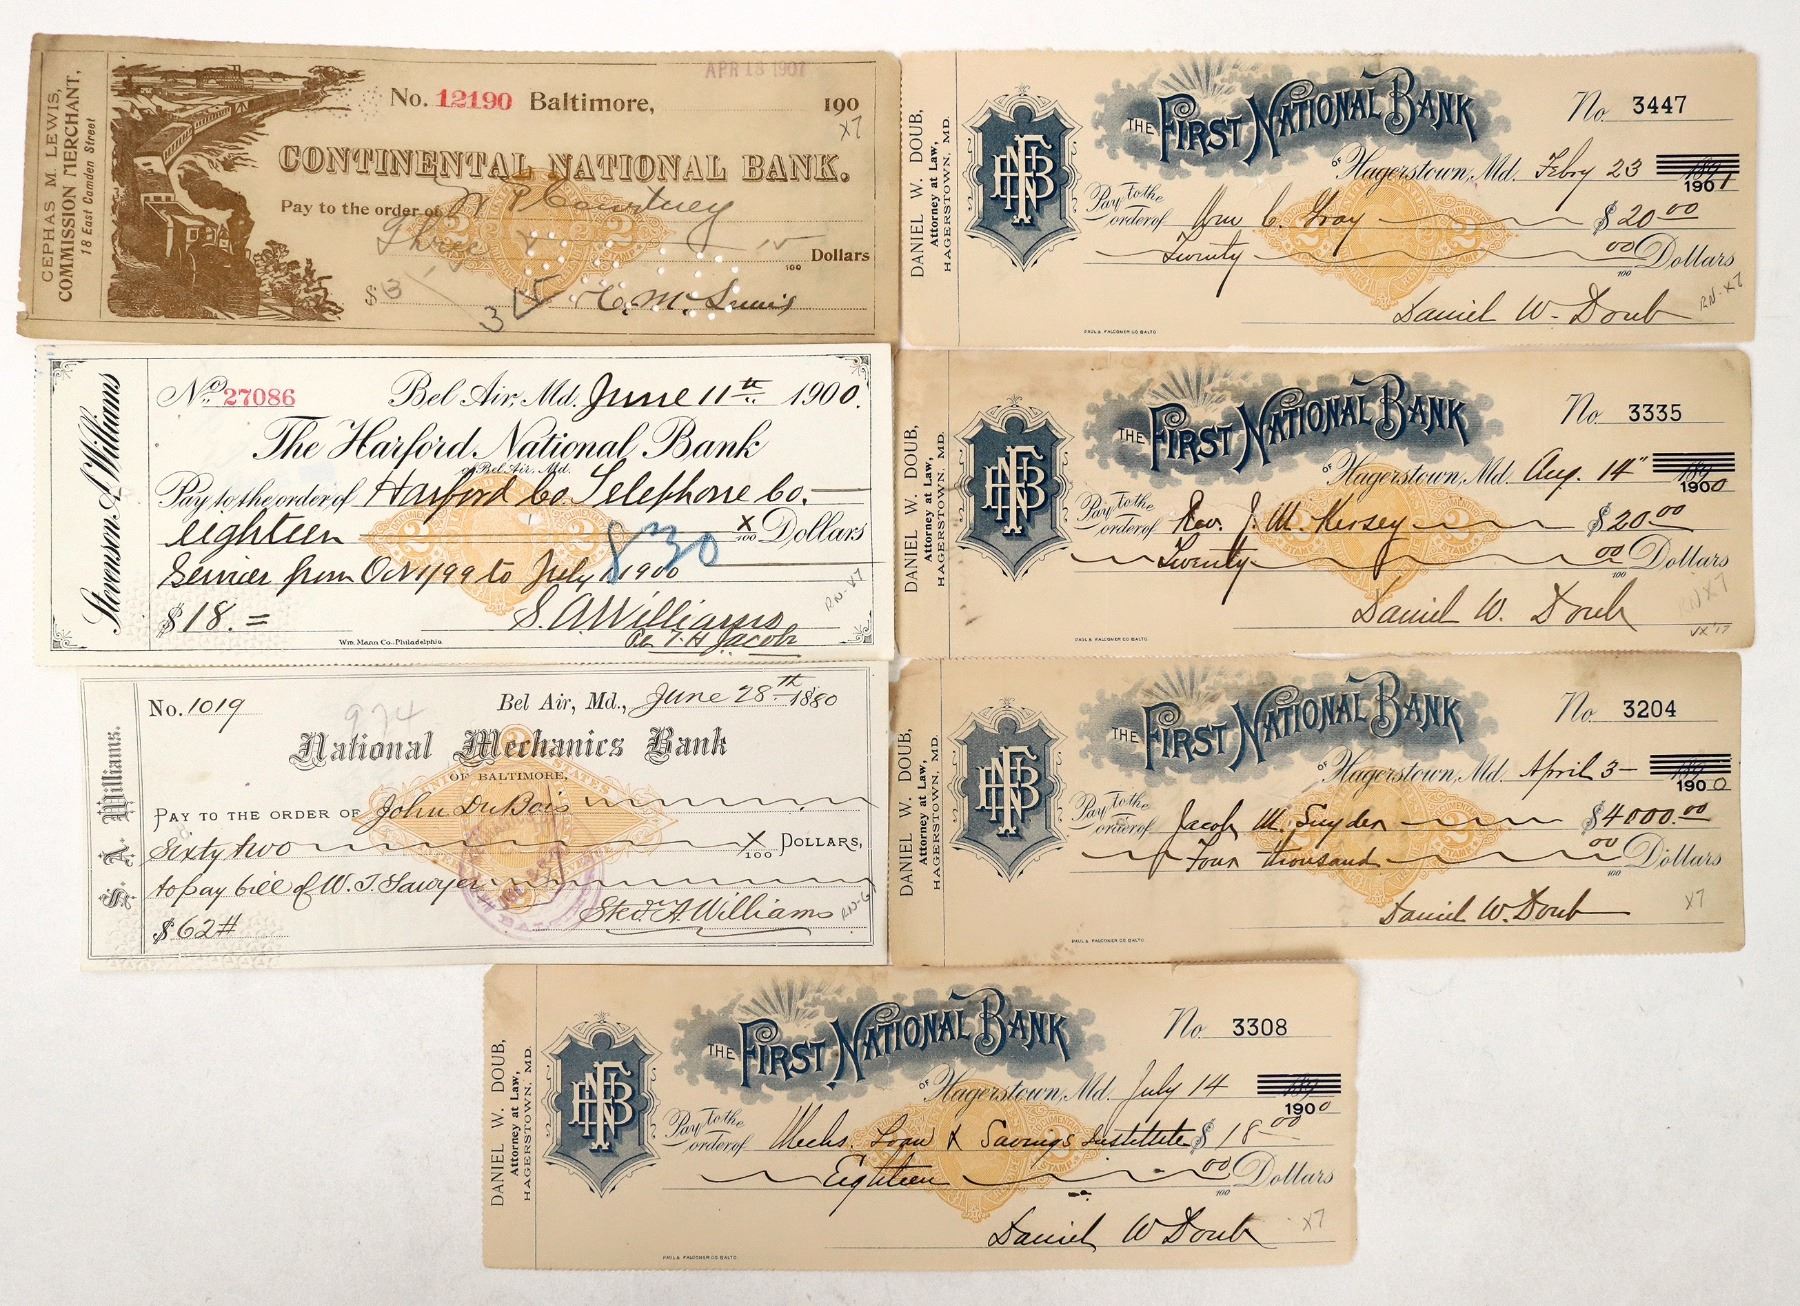 CEPHAS M. LEWIS,
COMMISSION MERCHANT,
18 East Camden Street
APR 18 1901
No. 12190 Baltimore, 190
X7
CONTINENTAL NATIONAL BANK.
Pay to the order of W P Courtney
Three 15/100 Dollars
$3 315
C. M. Lewis
Stevenson A. Williams
No. 27086 Bel Air, Md. June 11th 1900.
The Harford National Bank
of Bel Air, Md.
Pay to the order of Harford Co. Telephone Co.
eighteen X/100 Dollars
830
Services from Oct 1/99 to July 1 1900
$18.= S. A. Williams
Per T. H. Jacobs
Wm. Mann Co. Philadelphia
RN-X7
S. A. Williams.
No. 1019 Bel Air, Md., June 28th 1880
974
National Mechanics Bank
OF BALTIMORE,
PAY TO THE ORDER OF John DuBois
Sixty two X/100 DOLLARS,
to pay bill of W. T. Sawyer
$62# Stevn A Williams
RN-G
DANIEL W. DOUB,
Attorney at Law,
HAGERSTOWN, MD.
FNB
THE FIRST NATIONAL BANK No. 3447
OF Hagerstown, Md. Febry 23 189
1901
Pay to the order of Wm C. Gray $20 00
Twenty 00/100 Dollars
Daniel W. Doub
RN-X7
PAUL & FALCONER CO BALTO
DANIEL W. DOUB,
Attorney at Law,
HAGERSTOWN, MD.
FNB
THE FIRST NATIONAL BANK No. 3335
OF Hagerstown, Md. Aug. 14" 189
1900
Pay to the order of Rev. J. M. Kersey $20.00
Twenty 00/100 Dollars
Daniel W. Doub
RN X7
PAUL & FALCONER CO BALTO
DANIEL W. DOUB,
Attorney at Law,
HAGERSTOWN, MD.
FNB
THE FIRST NATIONAL BANK No. 3204
OF Hagerstown, Md. April 3 189
1900
Pay to the order of Jacob M. Snyder $4000.00
Four thousand 00/100 Dollars
Daniel W. Doub
X7
PAUL & FALCONER CO BALTO
DANIEL W. DOUB,
Attorney at Law,
HAGERSTOWN, MD.
FNB
THE FIRST NATIONAL BANK No. 3308
OF Hagerstown, Md. July 14 189
1900
Pay to the order of Mechs. Loan & Savings Institute $18 00
Eighteen 00/100 Dollars
Daniel W Doub
X7
PAUL & FALCONER CO BALTO